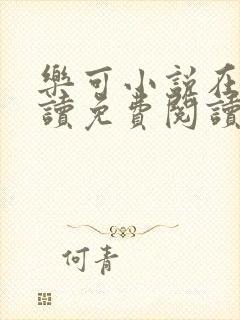 樂可小說在
讀免費閱讀
何青